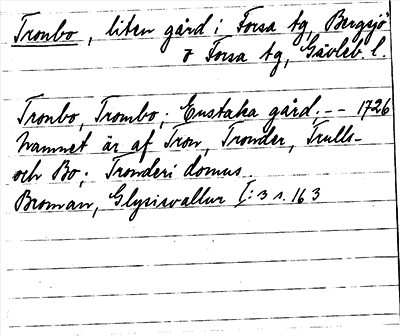 Tronbo, liten gård i Forsa tg, Bergsjö
o Forsa tg, Gävleb. l.
Tronbo, Trombo; Enstaka gård. -- 1726
Namnet är af Tron, Tronder, Trulls-
och Bo; Tronderi domus.
Broman, Glysisvallur I: 3 s. 163